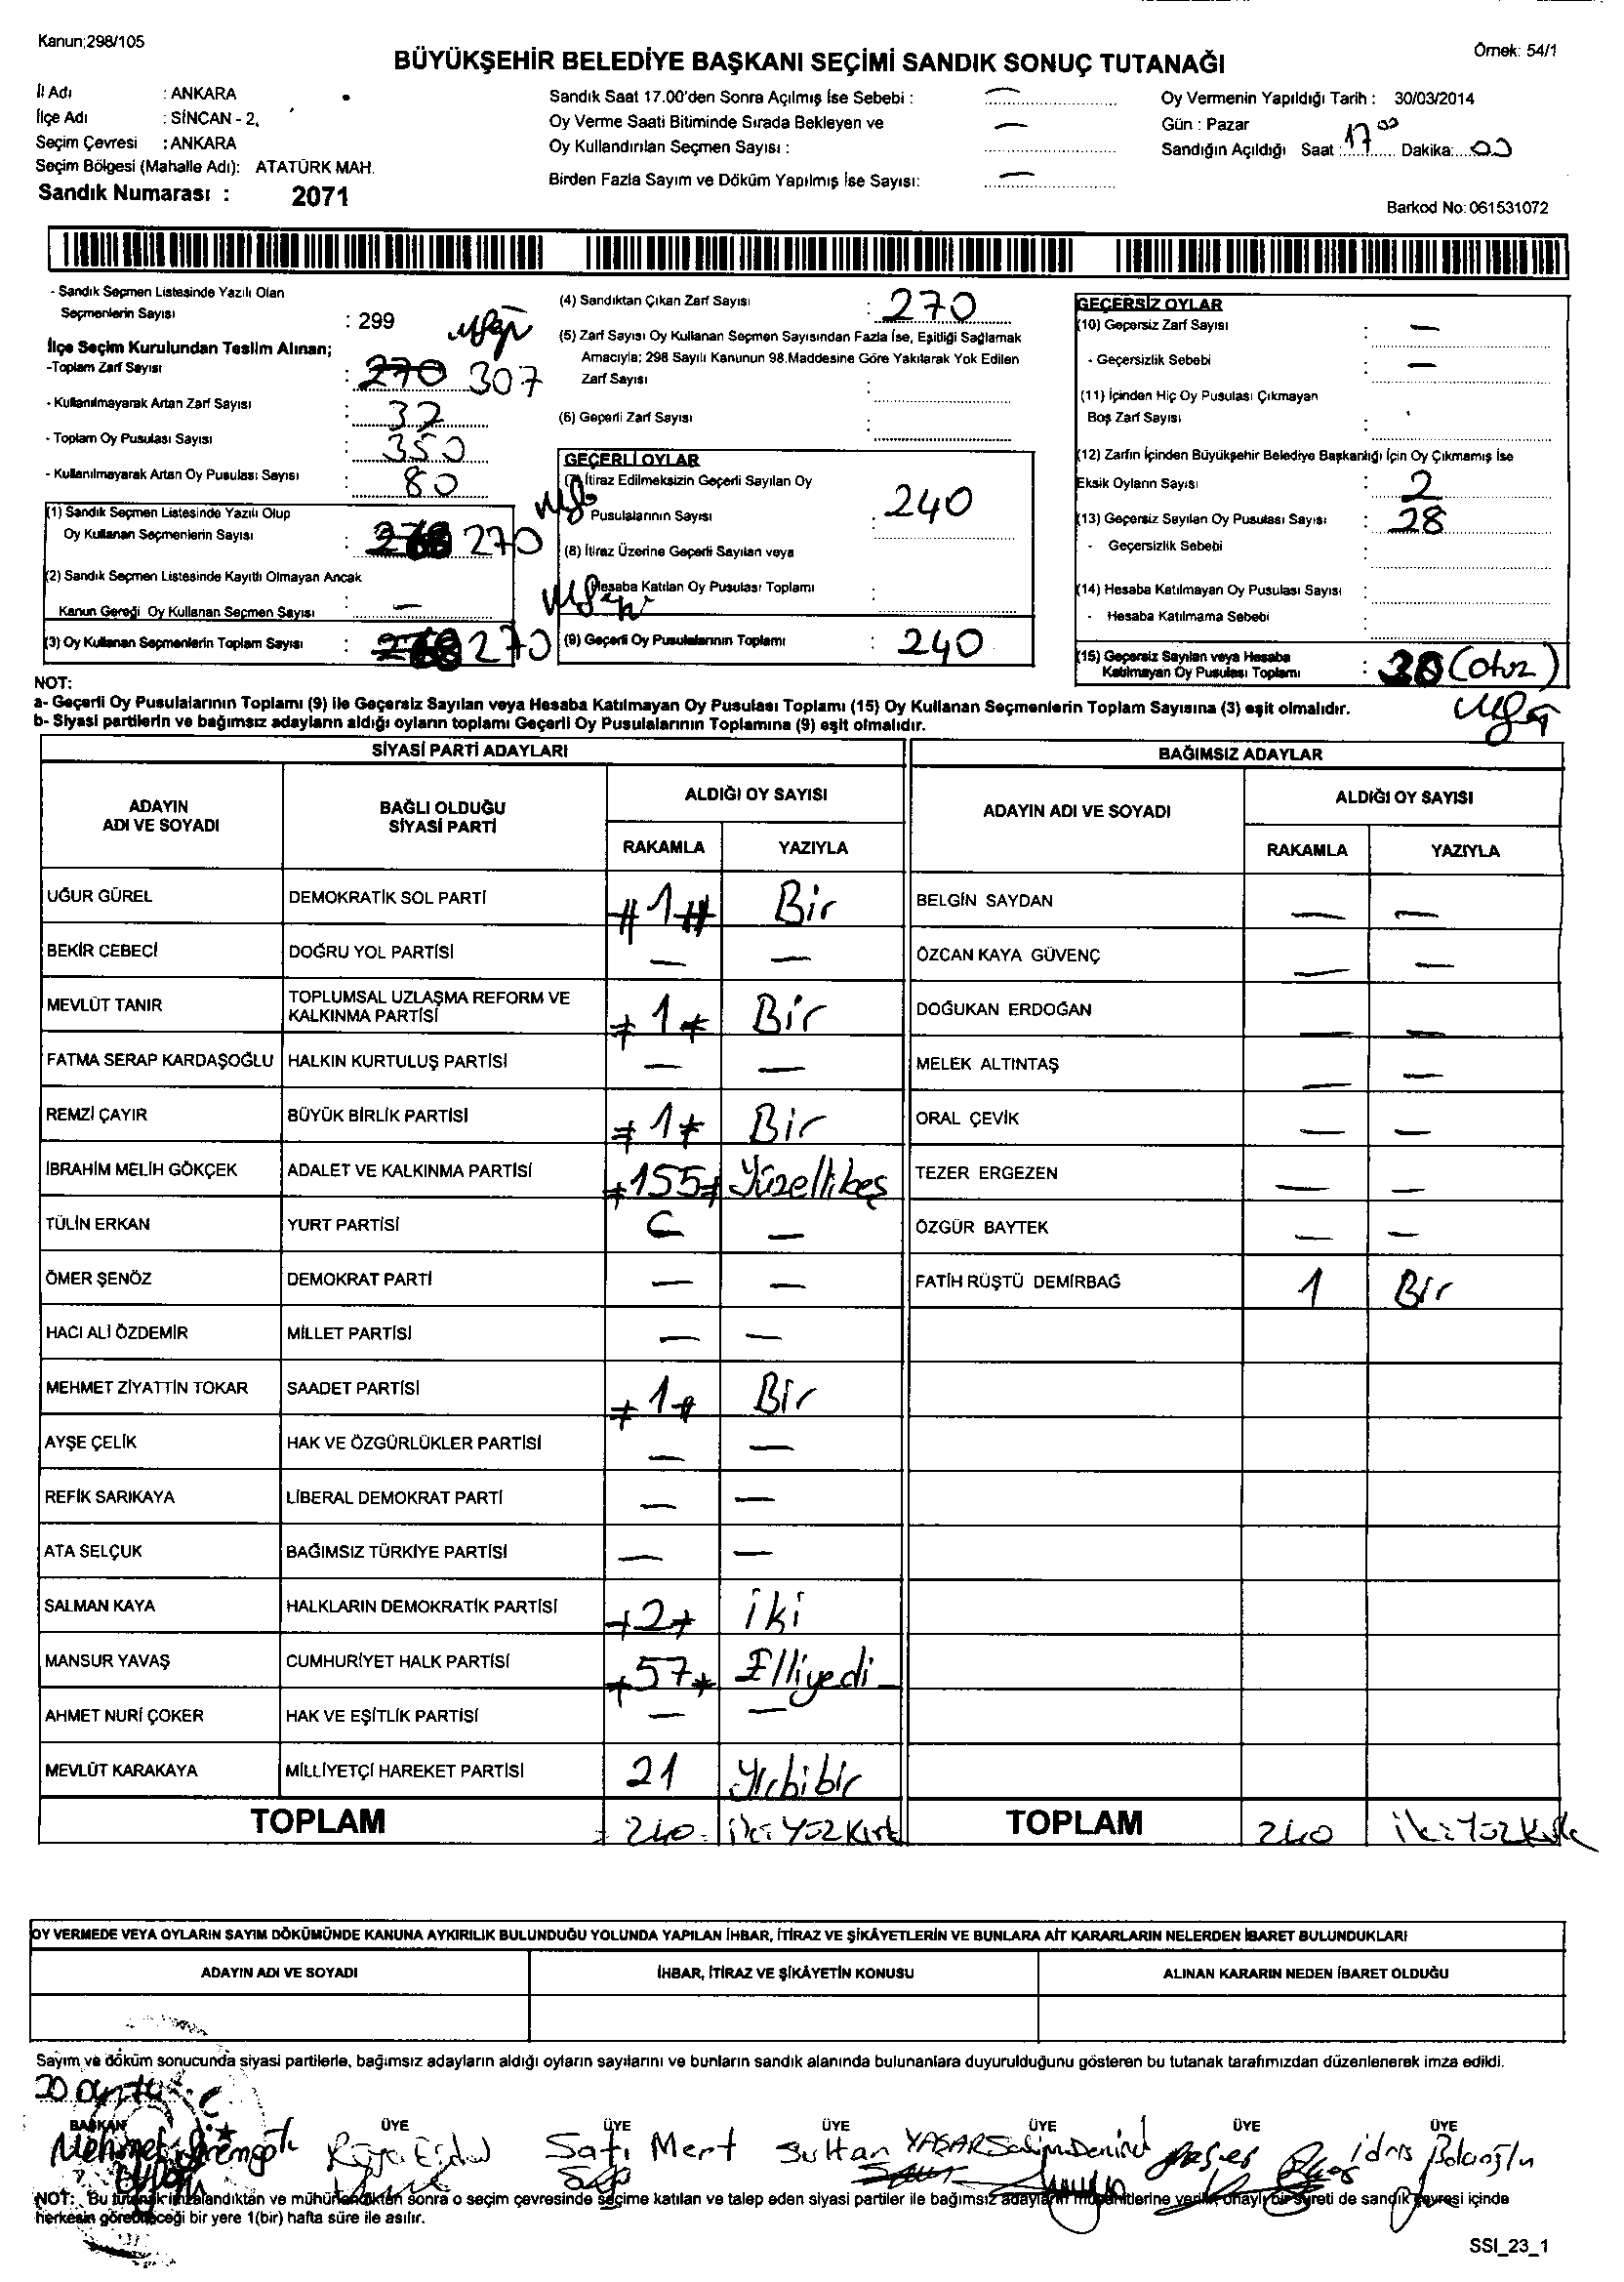 Kanun;298/105
Örnek: 54/1
BÜYÜKŞEHİR BELEDİYE BAŞKANI SEÇİMİ SANDIK SONUÇ TUTANAĞI
İl Adı : ANKARA
İlçe Adı : SİNCAN - 2,
Seçim Çevresi : ANKARA
Seçim Bölgesi (Mahalle Adı): ATATÜRK MAH.
Sandık Numarası : 2071
Sandık Saat 17.00'den Sonra Açılmış İse Sebebi : —
Oy Verme Saati Bitiminde Sırada Bekleyen ve
Oy Kullandırılan Seçmen Sayısı : —
Birden Fazla Sayım ve Döküm Yapılmış İse Sayısı: —
Oy Vermenin Yapıldığı Tarih : 30/03/2014
Gün : Pazar
Sandığın Açıldığı Saat : 17 00 Dakika: 00
Barkod No: 061531072
- Sandık Seçmen Listesinde Yazılı Olan
Seçmenlerin Sayısı : 299
İlçe Seçim Kurulundan Teslim Alınan;
-Toplam Zarf Sayısı : 270 307
- Kullanılmayarak Artan Zarf Sayısı : 37
- Toplam Oy Pusulası Sayısı : 350
- Kullanılmayarak Artan Oy Pusulası Sayısı : 80
(1) Sandık Seçmen Listesinde Yazılı Olup
Oy Kullanan Seçmenlerin Sayısı : 270
(2) Sandık Seçmen Listesinde Kayıtlı Olmayan Ancak
Kanun Gereği Oy Kullanan Seçmen Sayısı : —
(3) Oy Kullanan Seçmenlerin Toplam Sayısı : 270
(4) Sandıktan Çıkan Zarf Sayısı : 270
(5) Zarf Sayısı Oy Kullanan Seçmen Sayısından Fazla İse, Eşitliği Sağlamak
Amacıyla; 298 Sayılı Kanunun 98.Maddesine Göre Yakılarak Yok Edilen
Zarf Sayısı :
(6) Geçerli Zarf Sayısı :
GEÇERLİ OYLAR
(7) İtiraz Edilmeksizin Geçerli Sayılan Oy
Pusulalarının Sayısı : 240
(8) İtiraz Üzerine Geçerli Sayılan veya
Hesaba Katılan Oy Pusulası Toplamı :
(9) Geçerli Oy Pusulalarının Toplamı : 240
GEÇERSİZ OYLAR
(10) Geçersiz Zarf Sayısı : —
- Geçersizlik Sebebi : —
(11) İçinden Hiç Oy Pusulası Çıkmayan
Boş Zarf Sayısı :
(12) Zarfın İçinden Büyükşehir Belediye Başkanlığı İçin Oy Çıkmamış İse
Eksik Oyların Sayısı : 2
(13) Geçersiz Sayılan Oy Pusulası Sayısı : 28
- Geçersizlik Sebebi :
(14) Hesaba Katılmayan Oy Pusulası Sayısı :
- Hesaba Katılmama Sebebi :
(15) Geçersiz Sayılan veya Hesaba
Katılmayan Oy Pusulası Toplamı : 30 (otuz)
NOT:
a- Geçerli Oy Pusulalarının Toplamı (9) ile Geçersiz Sayılan veya Hesaba Katılmayan Oy Pusulası Toplamı (15) Oy Kullanan Seçmenlerin Toplam Sayısına (3) eşit olmalıdır.
b- Siyasi partilerin ve bağımsız adayların aldığı oyların toplamı Geçerli Oy Pusulalarının Toplamına (9) eşit olmalıdır.
SİYASİ PARTİ ADAYLARI
ADAYIN ADI VE SOYADI
BAĞLI OLDUĞU SİYASİ PARTİ
ALDIĞI OY SAYISI
RAKAMLA YAZIYLA
UĞUR GÜREL DEMOKRATİK SOL PARTİ #1# Bir
BEKİR CEBECİ DOĞRU YOL PARTİSİ — —
MEVLÜT TANIR TOPLUMSAL UZLAŞMA REFORM VE KALKINMA PARTİSİ 1 Bir
FATMA SERAP KARDAŞOĞLU HALKIN KURTULUŞ PARTİSİ — —
REMZİ ÇAYIR BÜYÜK BİRLİK PARTİSİ 1 Bir
İBRAHİM MELİH GÖKÇEK ADALET VE KALKINMA PARTİSİ 155 Yüzellibeş
TÜLİN ERKAN YURT PARTİSİ —
ÖMER ŞENÖZ DEMOKRAT PARTİ — —
HACI ALİ ÖZDEMİR MİLLET PARTİSİ — —
MEHMET ZİYATTİN TOKAR SAADET PARTİSİ 1 Bir
AYŞE ÇELİK HAK VE ÖZGÜRLÜKLER PARTİSİ — —
REFİK SARIKAYA LİBERAL DEMOKRAT PARTİ — —
ATA SELÇUK BAĞIMSIZ TÜRKİYE PARTİSİ — —
SALMAN KAYA HALKLARIN DEMOKRATİK PARTİSİ 2 iki
MANSUR YAVAŞ CUMHURİYET HALK PARTİSİ 57 Elliyedi
AHMET NURİ ÇOKER HAK VE EŞİTLİK PARTİSİ — —
MEVLÜT KARAKAYA MİLLİYETÇİ HAREKET PARTİSİ 21
TOPLAM 240 iki yüz kırk
BAĞIMSIZ ADAYLAR
ADAYIN ADI VE SOYADI
ALDIĞI OY SAYISI
RAKAMLA YAZIYLA
BELGİN SAYDAN — —
ÖZCAN KAYA GÜVENÇ — —
DOĞUKAN ERDOĞAN — —
MELEK ALTINTAŞ — —
ORAL ÇEVİK — —
TEZER ERGEZEN — —
ÖZGÜR BAYTEK — —
FATİH RÜŞTÜ DEMİRBAĞ 1 Bir
TOPLAM 240 iki yüz kırk
OY VERMEDE VEYA OYLARIN SAYIM DÖKÜMÜNDE KANUNA AYKIRILIK BULUNDUĞU YOLUNDA YAPILAN İHBAR, İTİRAZ VE ŞİKÂYETLERİN VE BUNLARA AİT KARARLARIN NELERDEN İBARET BULUNDUKLARI
ADAYIN ADI VE SOYADI İHBAR, İTİRAZ VE ŞİKÂYETİN KONUSU ALINAN KARARIN NEDEN İBARET OLDUĞU
Sayım ve döküm sonucunda siyasi partilerle, bağımsız adayların aldığı oyların sayılarını ve bunların sandık alanında bulunanlara duyurulduğunu gösteren bu tutanak tarafımızdan düzenlenerek imza edildi.
BAŞKAN ÜYE ÜYE ÜYE ÜYE ÜYE ÜYE
Mehmet Safi Mert Sultan YAŞAR idris
NOT: Bu tutanak imzalandıktan ve mühürlendikten sonra o seçim çevresinde seçime katılan ve talep eden siyasi partiler ile bağımsız adayların müşahitlerine verilir, onaylı bir sureti de sandık çevresi içinde
herkesin görebileceği bir yere 1(bir) hafta süre ile asılır.
SSI_23_1